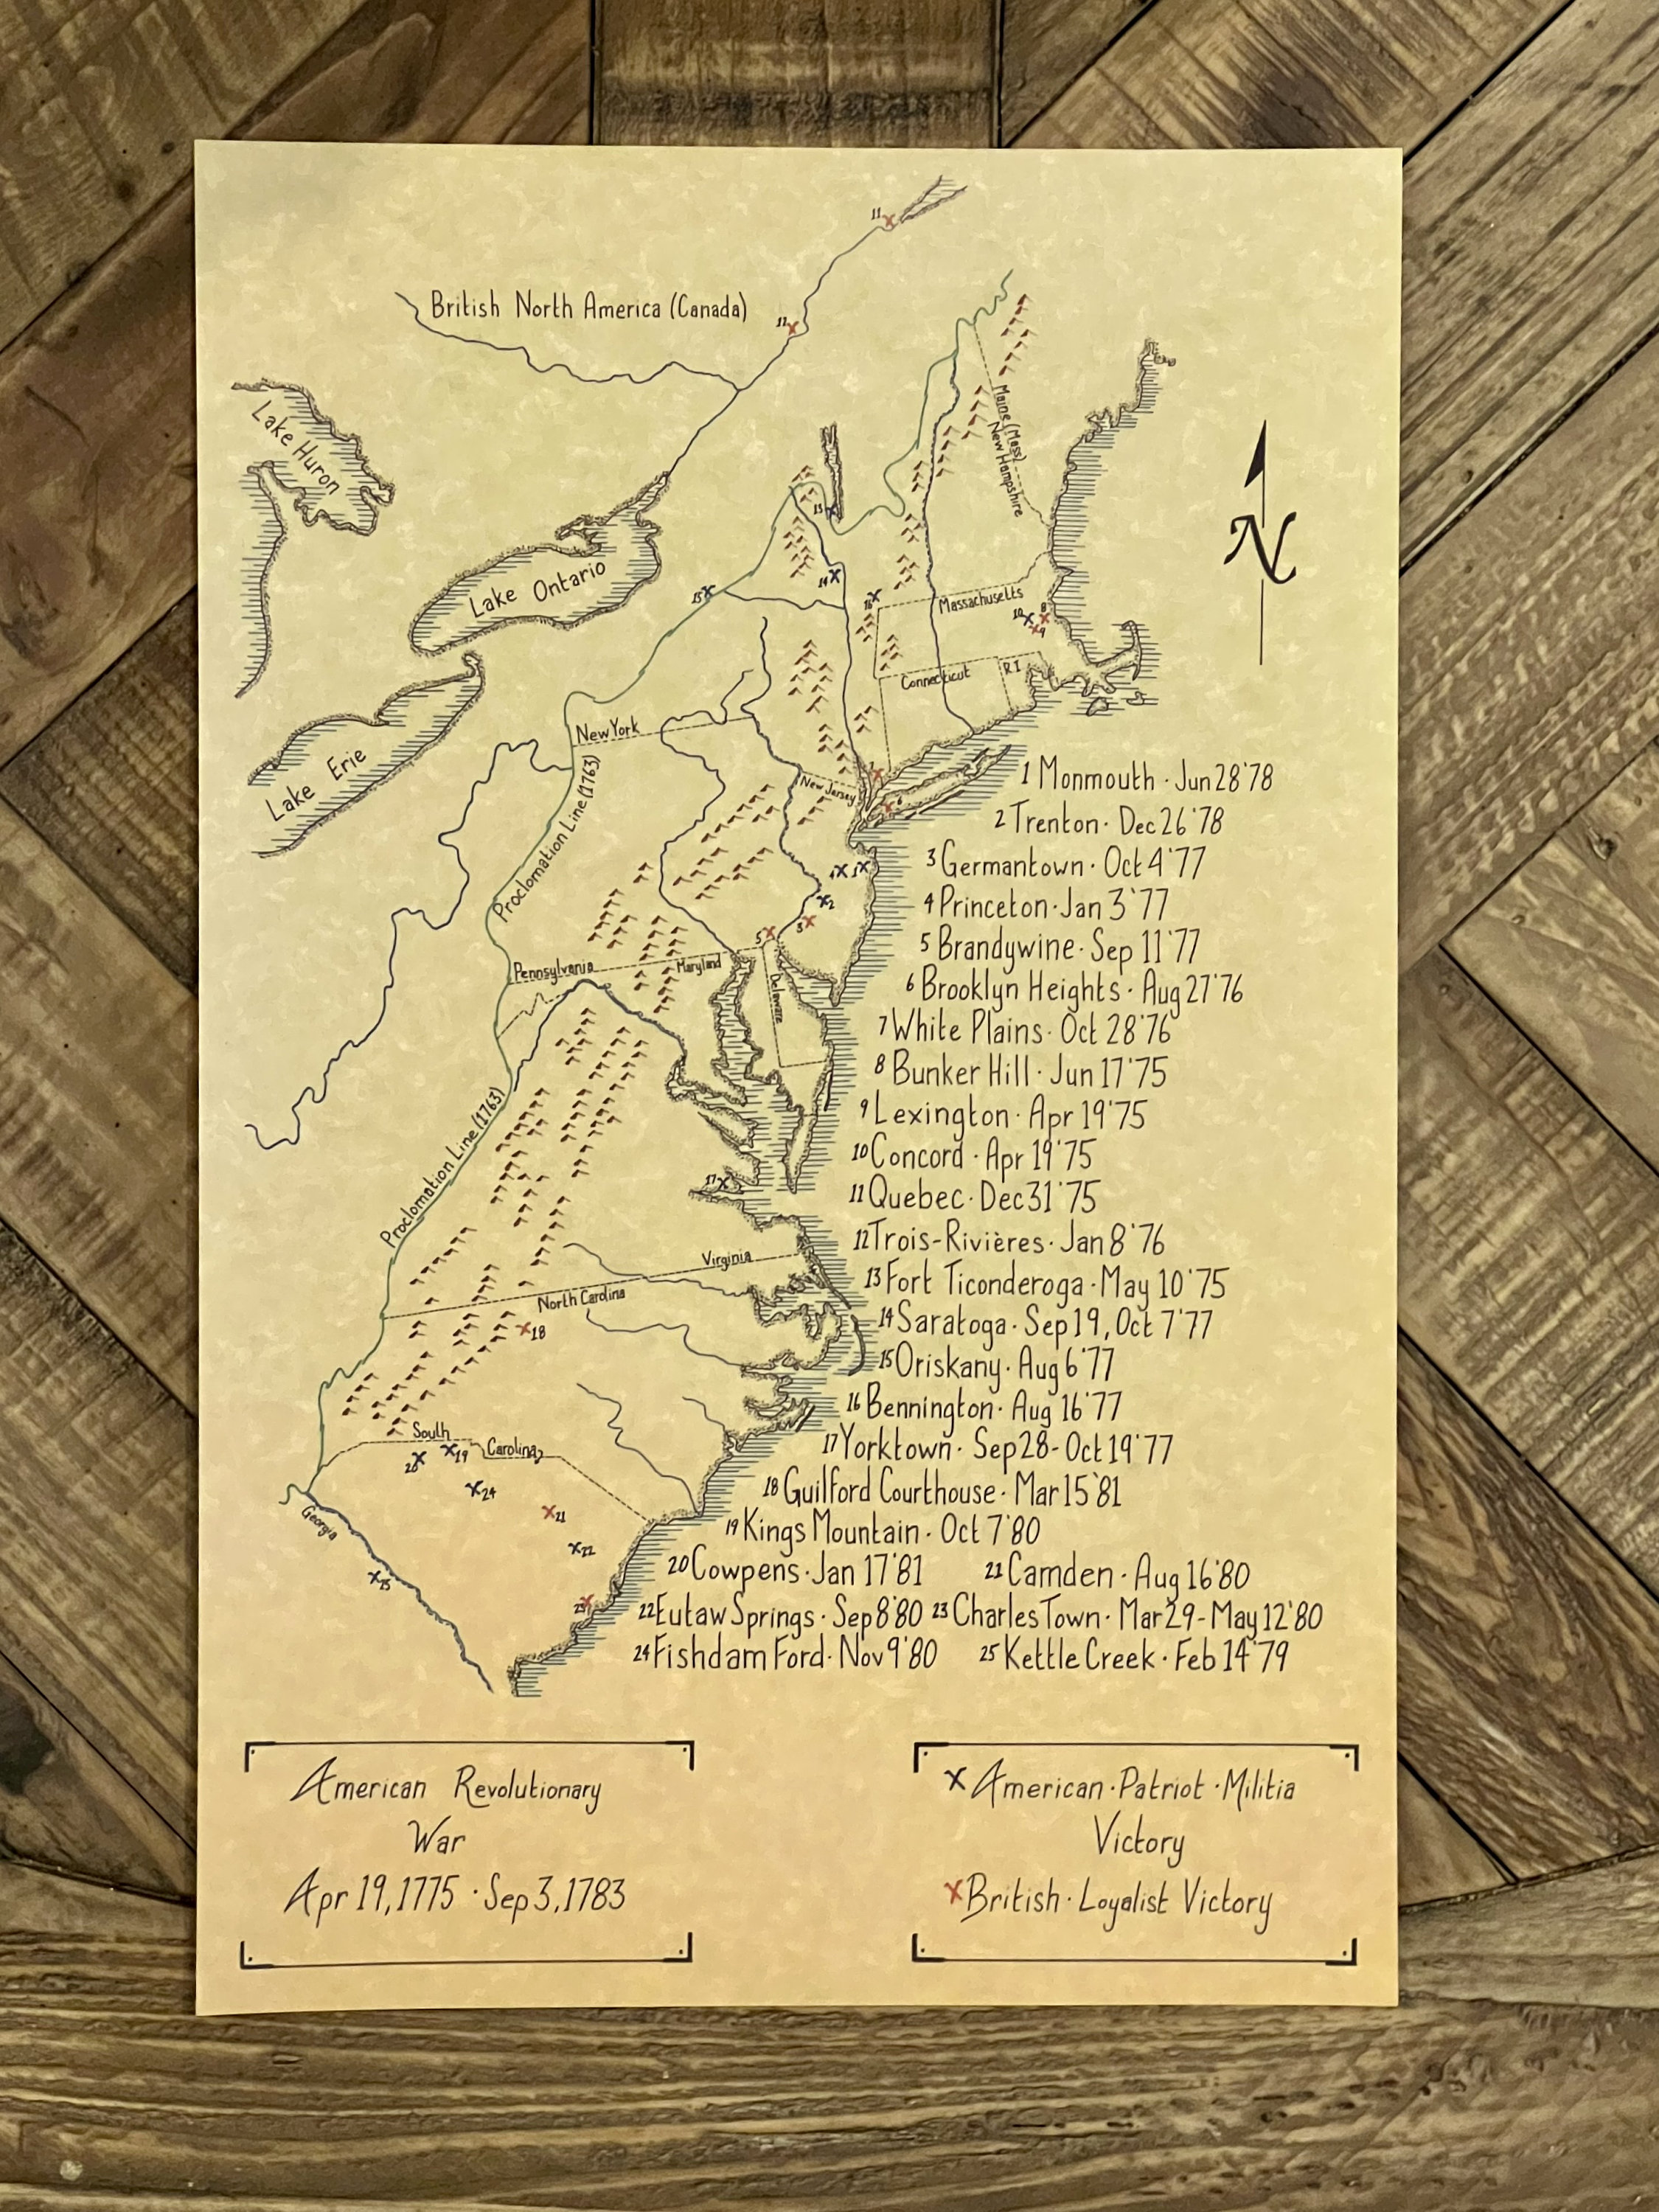 11
British North America (Canada)
12
Lake Huron
Maine (Mass)
New Hampshire
13
Lake Ontario
15
14
16
Massachusetts
10
8
9
Connecticut
R I
N
New York
Lake Erie
Proclomation Line (1763)
New Jersey
7
6
4
1
2
3
5
Pennsylvania
Maryland
Deleware
Proclomation Line (1763)
17
Virginia
North Carolina
18
South Carolina
20
19
24
21
22
Georgia
25
23
1 Monmouth · Jun 28 '78
2 Trenton · Dec 26 '78
3 Germantown · Oct 4 '77
4 Princeton · Jan 3 '77
5 Brandywine · Sep 11 '77
6 Brooklyn Heights · Aug 27 '76
7 White Plains · Oct 28 '76
8 Bunker Hill · Jun 17 '75
9 Lexington · Apr 19 '75
10 Concord · Apr 19 '75
11 Quebec · Dec 31 '75
12 Trois-Rivières · Jan 8 '76
13 Fort Ticonderoga · May 10 '75
14 Saratoga · Sep 19, Oct 7 '77
15 Oriskany · Aug 6 '77
16 Bennington · Aug 16 '77
17 Yorktown · Sep 28 - Oct 19 '77
18 Guilford Courthouse · Mar 15 '81
19 Kings Mountain · Oct 7 '80
20 Cowpens · Jan 17 '81 21 Camden · Aug 16 '80
22 Eutaw Springs · Sep 8 '80 23 Charles Town · Mar 29 - May 12 '80
24 Fishdam Ford · Nov 9 '80 25 Kettle Creek · Feb 14 '79
American Revolutionary
War
Apr 19, 1775 · Sep 3, 1783
X American · Patriot · Militia
Victory
X British · Loyalist Victory